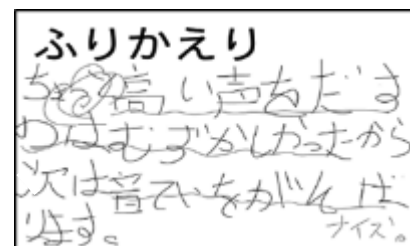 ふりかえり
ちょっと高い声をだす
のはむずかしかったから
次は音ていをがんば
ります。
ナイス。